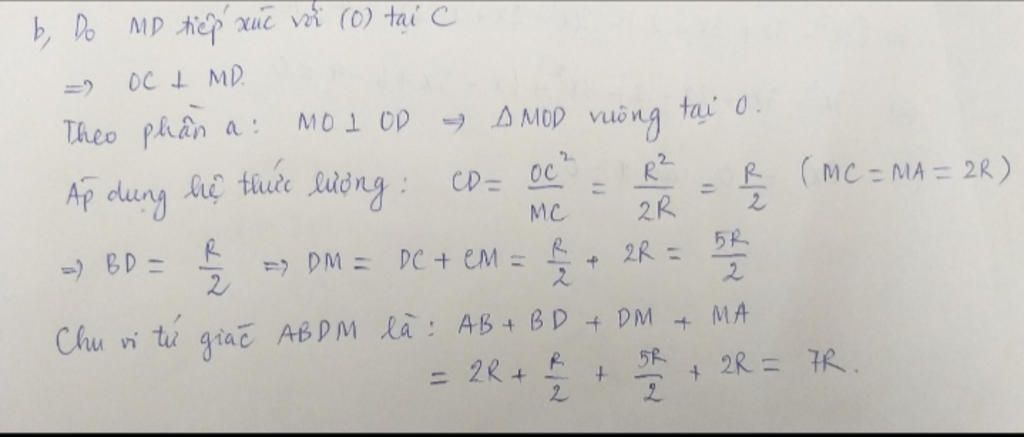 b, Do MD tiếp xúc với (O) tại C
=> OC ⊥ MD.
Theo phần a: MO ⊥ OD => Δ MOD vuông tại O.
Áp dụng hệ thức lượng: CD = OC²/MC = R²/2R = R/2 (MC = MA = 2R)
=> BD = R/2 => DM = DC + CM = R/2 + 2R = 5R/2
Chu vi tứ giác ABDM là: AB + BD + DM + MA
= 2R + R/2 + 5R/2 + 2R = 7R.